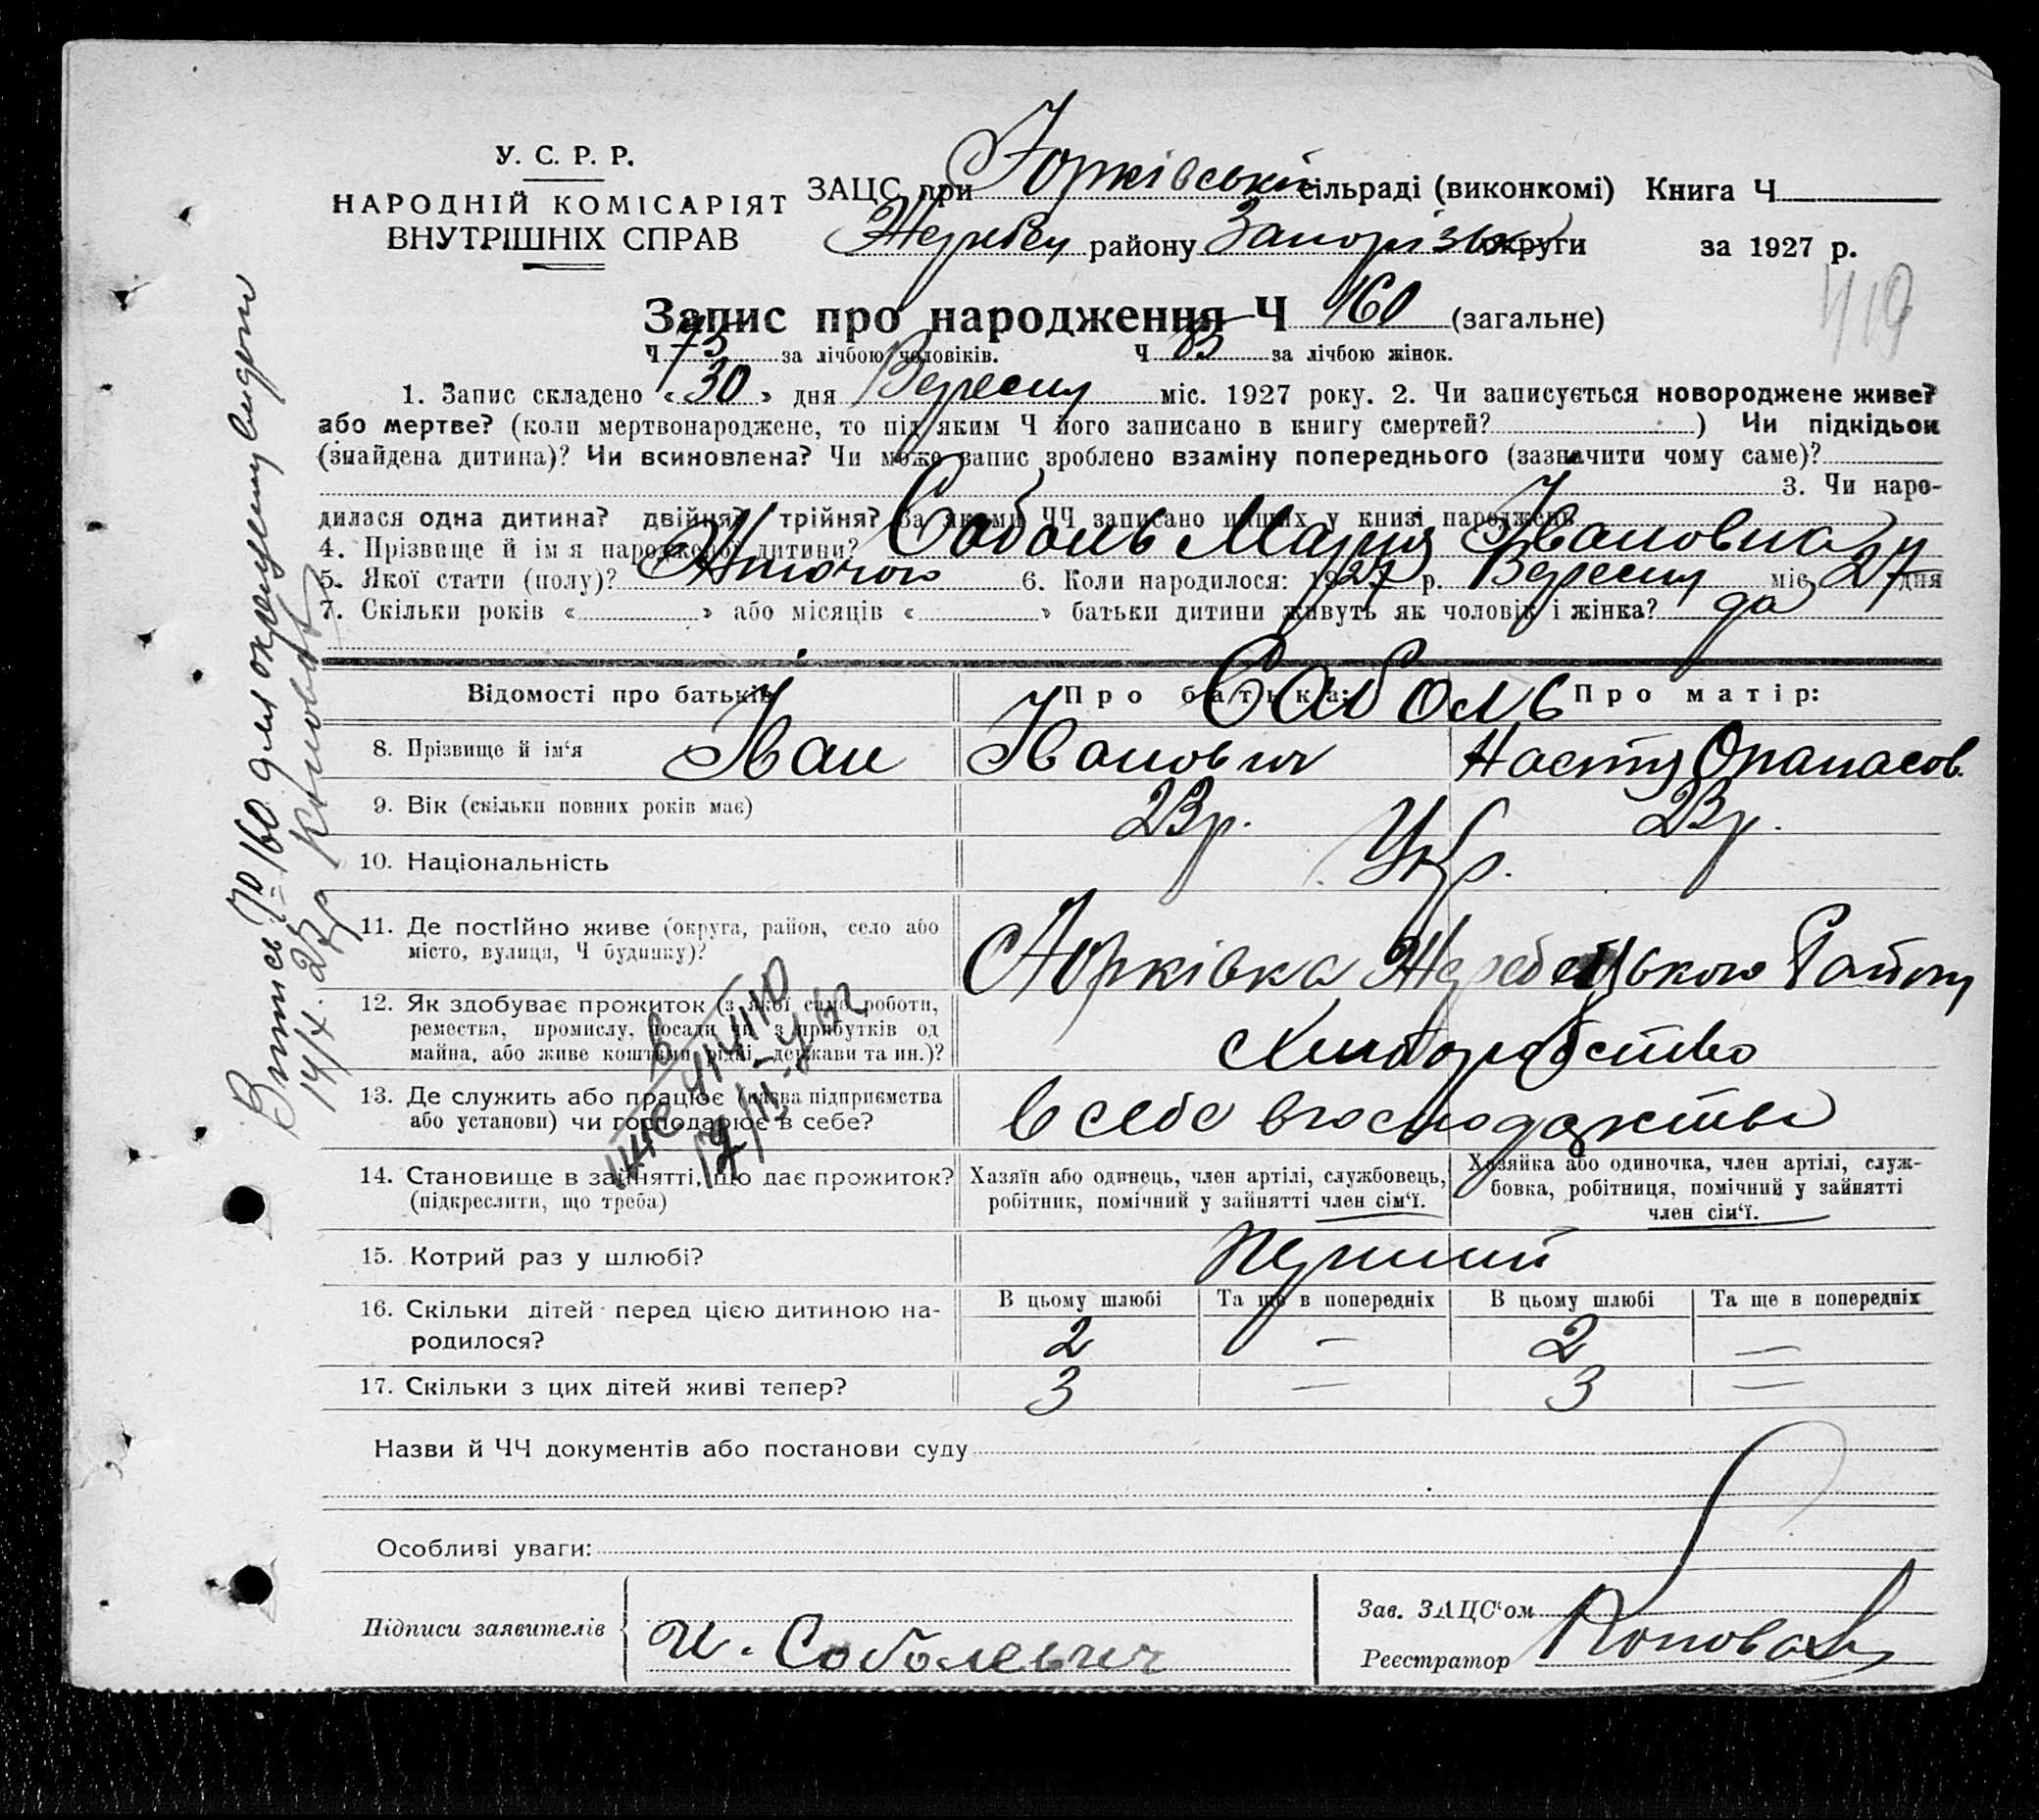 У. С. Р. Р.
НАРОДНІЙ КОМІСАРІЯТ
ВНУТРІШНІХ СПРАВ
ЗАЦС при Юрківській сільраді (виконкомі) Книга Ч
Жеребец району Запорізьк округи за 1927 р.
419
Запис про народження Ч 160 (загальне)
Ч 75 за лічбою чоловіків. Ч 85 за лічбою жінок.
1. Запис складено «30» дня Вересня міс. 1927 року. 2. Чи записується новороджене живе?
або мертве? (коли мертвонароджене, то під яким Ч його записано в книгу смертей? ) Чи підкідьок
(знайдена дитина)? Чи всиновлена? Чи може запис зроблено взаміну попереднього (зазначити чому саме)?
3. Чи наро-
дилася одна дитина? двійня? трійня? За якими ЧЧ записано инших у книзі народжень
4. Прізвище й ім'я народженої дитини? Соболь Мария Івановна
5. Якої стати (полу)? Жіночої 6. Коли народилося: 1927 р. Вересня міс 27 дня
7. Скільки років « » або місяців « » батьки дитини живуть як чоловік і жінка? да
Відомості про батьків Про батька: Соболь Про матір:
8. Прізвище й ім'я Іван Іванович Настя Опанасов.
9. Вік (скільки повних років має) 23р. 23р.
10. Національність Укр.
11. Де постійно живе (округа, район, село або
місто, вулиця, Ч будинку)? С Юрківка Жеребецького Району
12. Як здобуває прожиток (з якої саме роботи,
ремества, промислу, посади чи з прибутків од
майна, або живе коштами рідні, держави та ин.)? Хліборобство
13. Де служить або працює (назва підприємства
або установи) чи господарює в себе? В себе в господарстві
14. Становище в зайнятті, що дає прожиток?
(підкреслити, що треба)
Хазяїн або одинець, член артілі, службовець,
робітник, помічний у зайнятті член сім'ї.
Хазяйка або одиночка, член артілі, служ-
бовка, робітниця, помічний у зайнятті
член сім'ї.
15. Котрий раз у шлюбі? Перший
16. Скільки дітей перед цією дитиною на-
родилося?
В цьому шлюбі Та ще в попередніх В цьому шлюбі Та ще в попередніх
2 — 2 —
17. Скільки з цих дітей живі тепер? 3 — 3 —
Назви й ЧЧ документів або постанови суду
Особливі уваги:
Підписи заявителів И. Соболевич
Зав. ЗАЦС'ом
Реєстратор Коновал
Выпись № 160
14/X. 27р Коновал